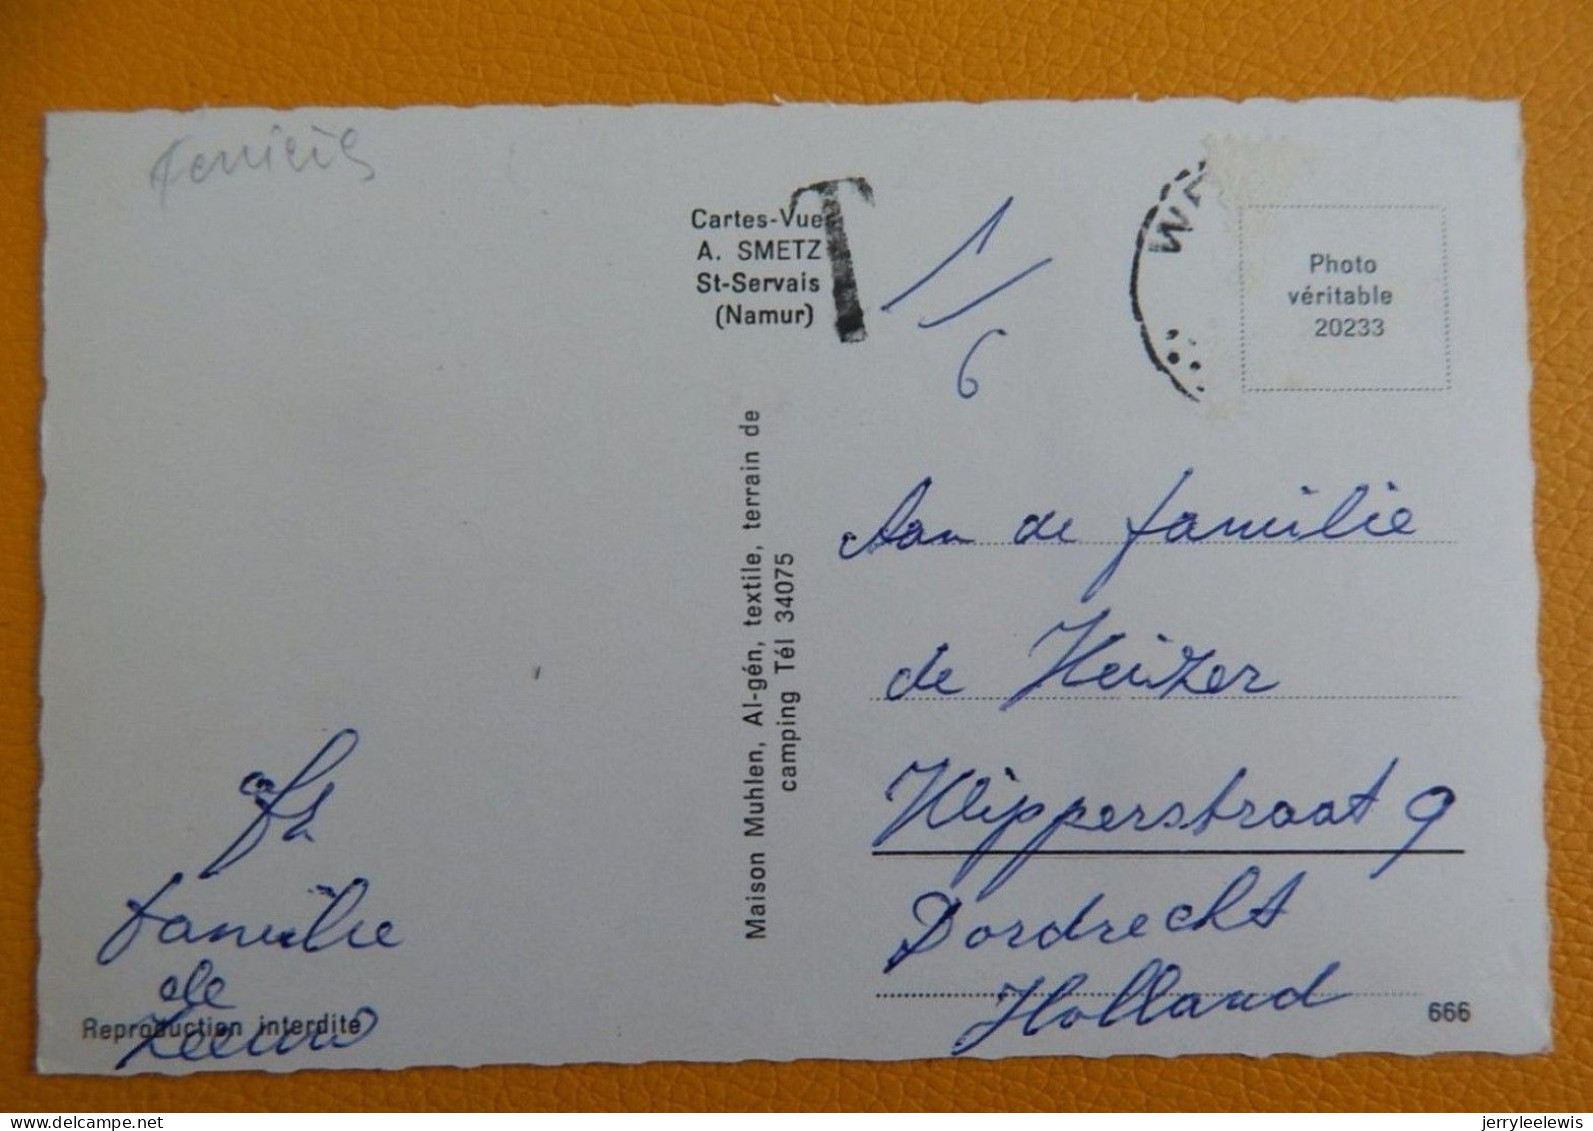 Cartes-Vue
A. SMETZ
St-Servais
(Namur)
T
1/6
Photo
véritable
20233
Maison Muhlen, Al-gén, textile, terrain de
camping Tél 34075
Aan de familie
de Keizer
Klipperstraat 9
Dordrecht
Holland
afz
familie
de
Leeuw
Reproduction interdite
666
delcampe.net
jerryleelewis